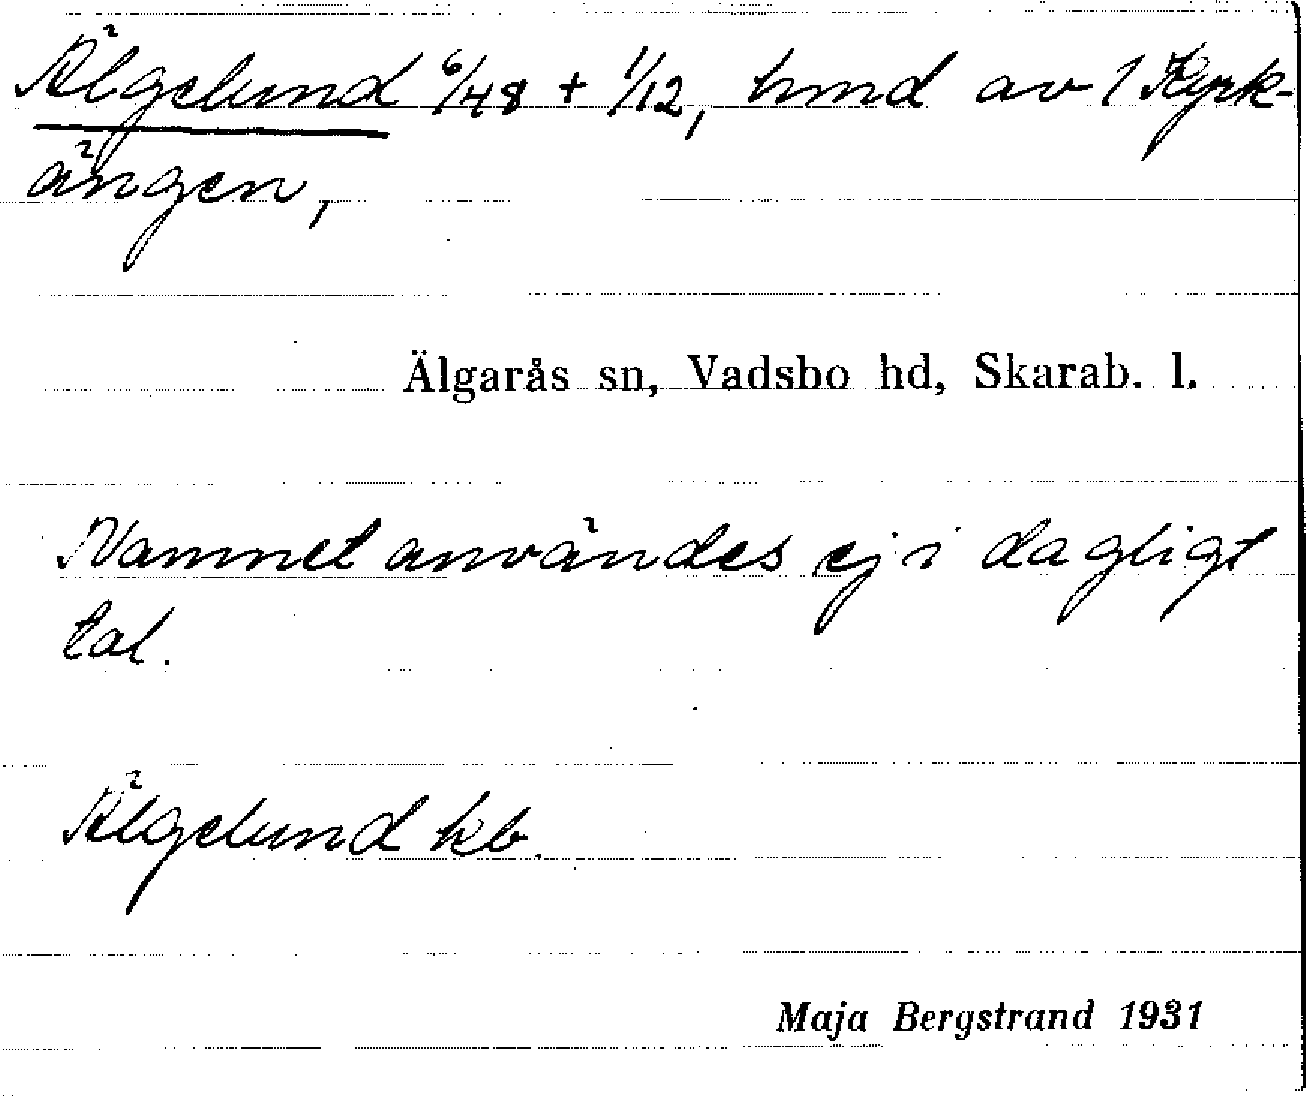 Älgelund 6/48 + 1/12, hmd av 1 Kyrk-
ängen,
Älgarås sn, Vadsbo hd, Skarab. l.
Namnet användes ej i dagligt
tal.
Älgelund kb.
Maja Bergstrand 1931